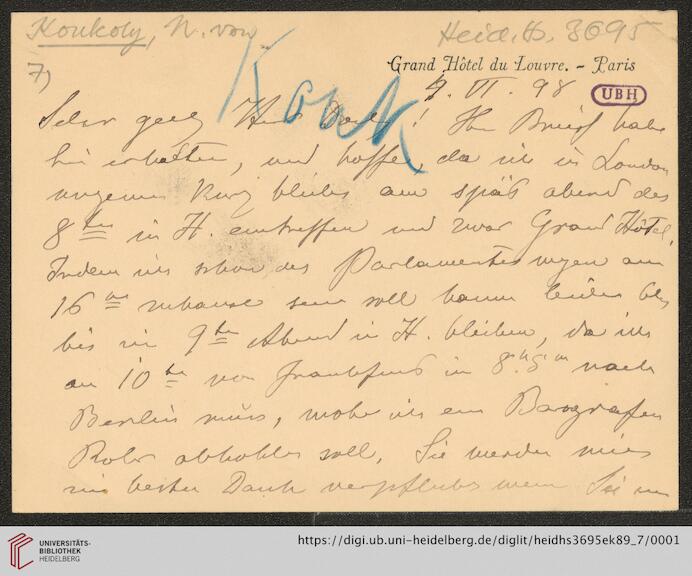 Konkoly, N. von
Heid. Hs. 3695
7)
Grand Hôtel du Louvre. - Paris
Kook
4. VI. 98
UBH
Sehr geehr Herr ! Ihren Brief habe
hier erhalten, und hoffe, da ich in London
ungemein kurz bleibe am spät abend des
8ten in H. eintreffen und zwar Grand Hôtel,
Indem ich schon des Parlamentes wegen am
16ten zuhause sein soll kann leider
bis im 9ten Abend in H. bleiben, da ich
am 10ten von Frankfurt in 8h5m nach
Berlin muss, woher ich ein Barografen
Rohr abholen soll, Sie werden mich
zu besten Dank verpflichten wenn Sie
UNIVERSITÄTS-
BIBLIOTHEK
HEIDELBERG
https://digi.ub.uni-heidelberg.de/diglit/heidhs3695ek89_7/0001